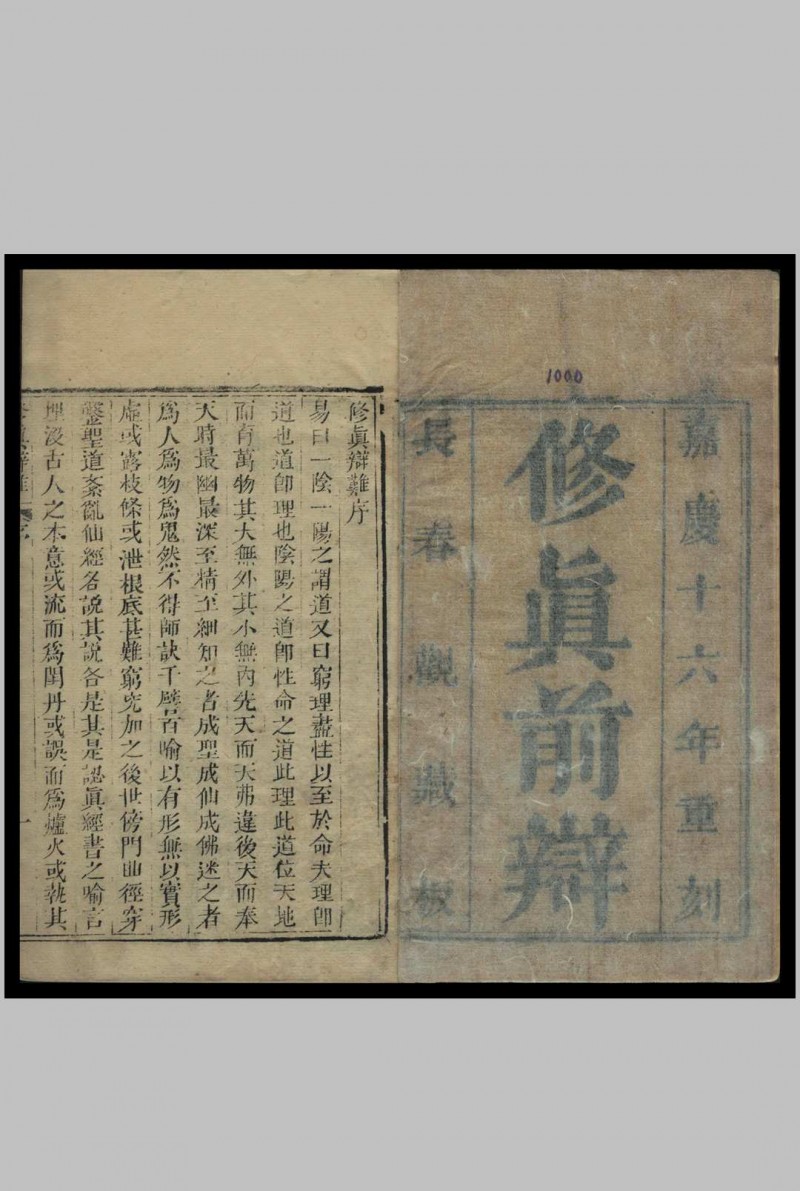 嘉慶十六年重刻
修眞前辯
長春觀藏板
1000
修眞辯難序
易曰一陰一陽之謂道又曰窮理盡性以至於命夫理即
道也道即理也陰陽之道即性命之道此理此道位天地
而育萬物其大無外其小無內先天而天弗違後天而奉
天時最幽最深至精至細知之者成聖成仙成佛迷之者
爲人爲物爲鬼然不得師訣千譬百喻以有形無以實形
虛或露枝條或泄根底甚難窮究加之後世傍門曲徑穿
鑿聖道紊亂仙經各說其說各是其是認眞經書之喻言
埋沒古人之本意或流而爲閨丹或誤而爲爐火或執其
一